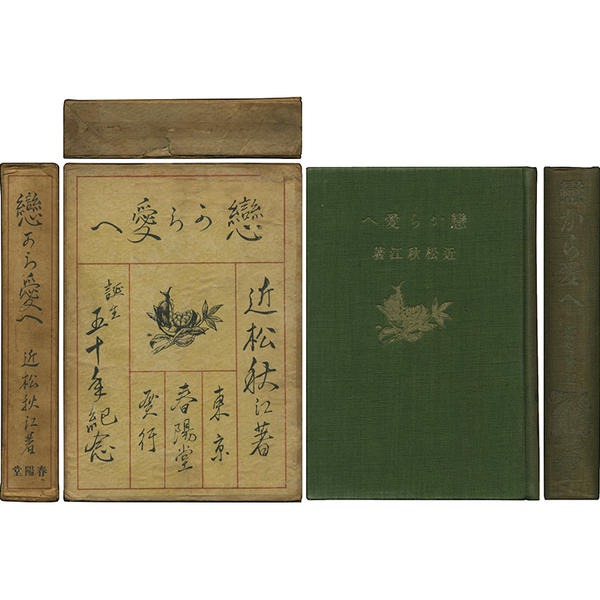 戀から愛へ
近松秋江著
春陽堂
戀から愛へ
近松秋江著
東京
春陽堂
發行
誕生
五十年紀念
戀から愛へ
近松秋江著
戀から愛へ